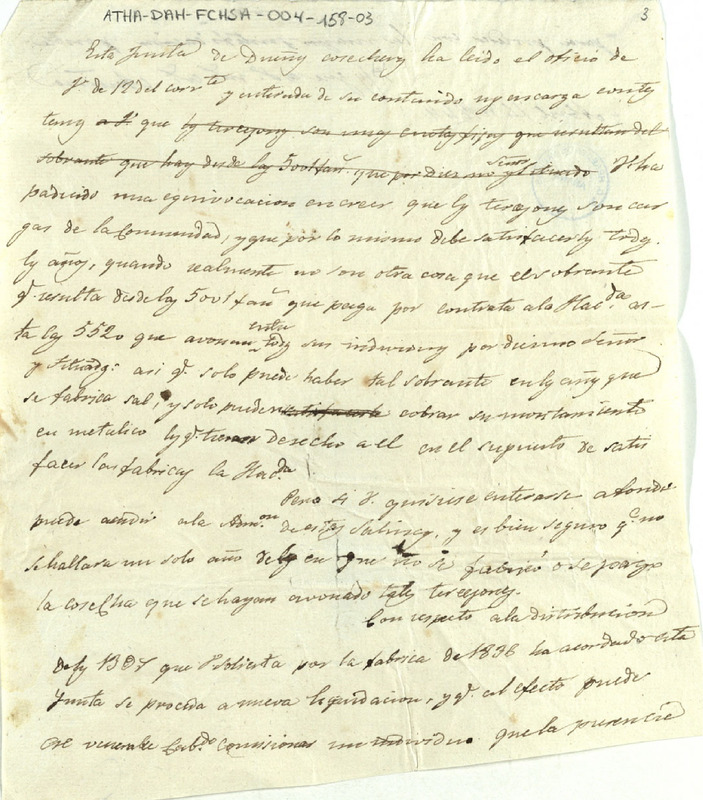 ATHA-DAH-FCHSA-004-158-03
3
Esta Junta de Dueñs cosechers ha leido el oficio de
Vˢ de 17 del corrᵗᵉ y enterada de su contenido ms encarga contes
tems a Vˢ que ls tercezons son mas que resultan del
sobrante que hay desde ls 5001 fanˢ que por Diezmo señor y situado Vˢ ha
padecido una equivocacion en creer que ls tercezons son car
gas de la Comunidad, y que por lo mismo debe satisfacerls tods.
ls años, quando realmente no son otra cosa que el sobrante
qᵉ resulta desde ls 5001 fanˢ que paga por contrata a la Hacᵈᵃ as-
ta ls 5520 que avonan entre tods sus individuos por diezmo Señor
y situads: asi qᵉ solo puede haber tal sobrante en ls años que
se fabrica sal, y solo pueden cobrar su montamiento
en metalico ls qᵉ tienen derecho a el en el supuesto de satis
facer las fabricas la Hacᵈᵃ
Pero si Vˢ quisiese enterarse a fondo
puede acudir a la Admᵒⁿ de estas Salinas, y es bien seguro qᵉ no
se hallara un solo año de ls en que no se fabricó o se pago
la cosecha que se hayan avonado tals tercezons.
Con respecto a la distribucion
de ls que solicita por la fabrica de 1836 ha acordado esta
Junta se proceda a nueva liquidacion, y qᵉ al efecto puede
ese venerable Cabᵈᵒ Comisionar un individuo que la presencie